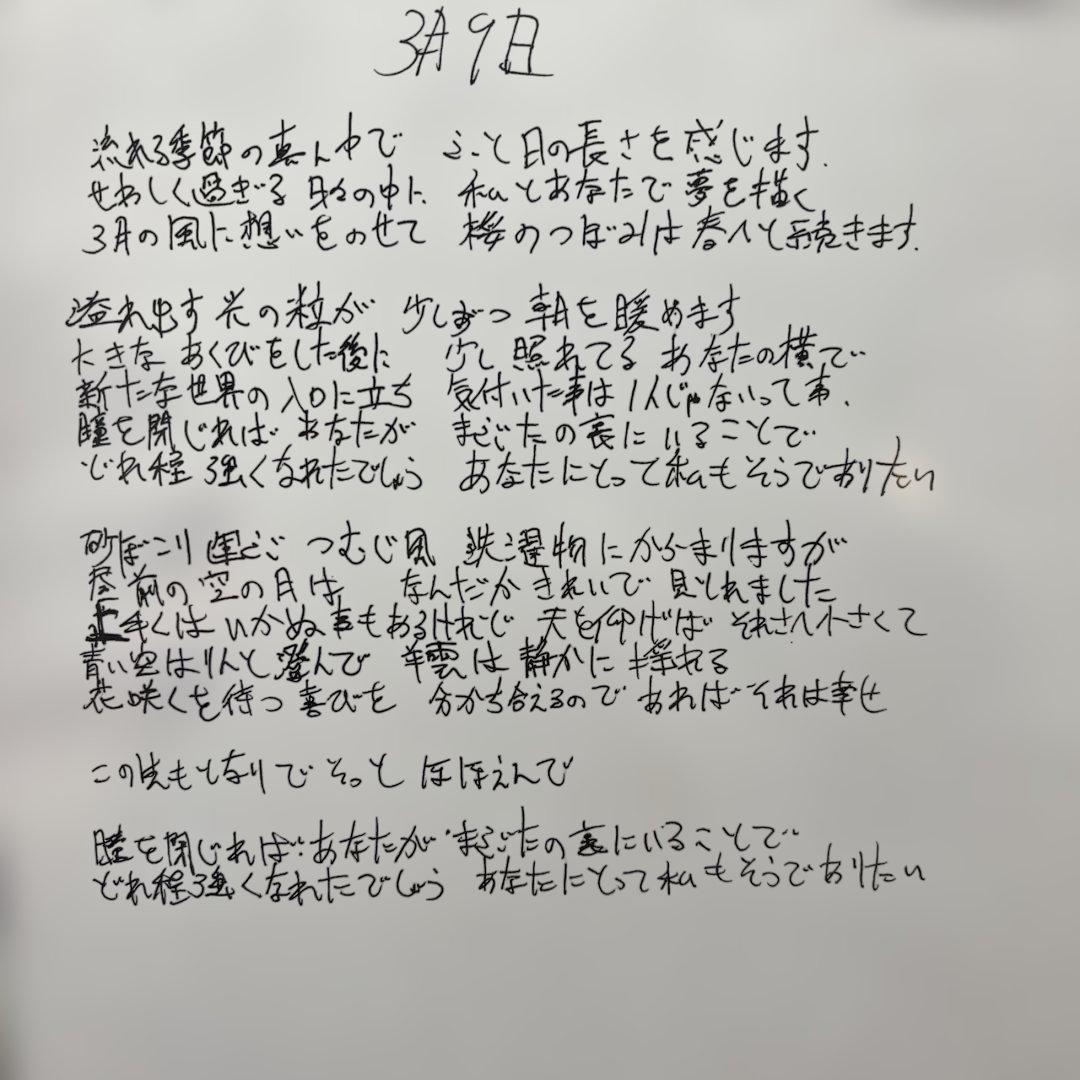 3月9日
流れる季節の真ん中で ふと日の長さを感じます.
せわしく過ぎる日々の中に 私とあなたで夢を描く
3月の風に想いをのせて 桜のつぼみは春へと続きます.
溢れ出す光の粒が 少しずつ朝を暖めます
大きなあくびをした後に 少し照れてるあなたの横で
新たな世界の入口に立ち 気付いた事は1人じゃないって事.
瞳を閉じればあなたが まぶたの裏にいることで
どれ程強くなれたでしょう あなたにとって私もそうでありたい
砂ぼこり運ぶ つむじ風 洗濯物にからまりますが
昼前の空の月は なんだかきれいで見とれました
上手くはいかぬ事もあるけれど 天を仰げば それさへ小さくて
青い空はりんと澄んで 羊雲は静かに揺れる
花咲くを待つ喜びを 分かち合えるのであれば それは幸せ
この先もとなりで そっと ほほえんで
瞳を閉じればあなたが まぶたの裏にいることで
どれ程強くなれたでしょう あなたにとって私もそうでありたい